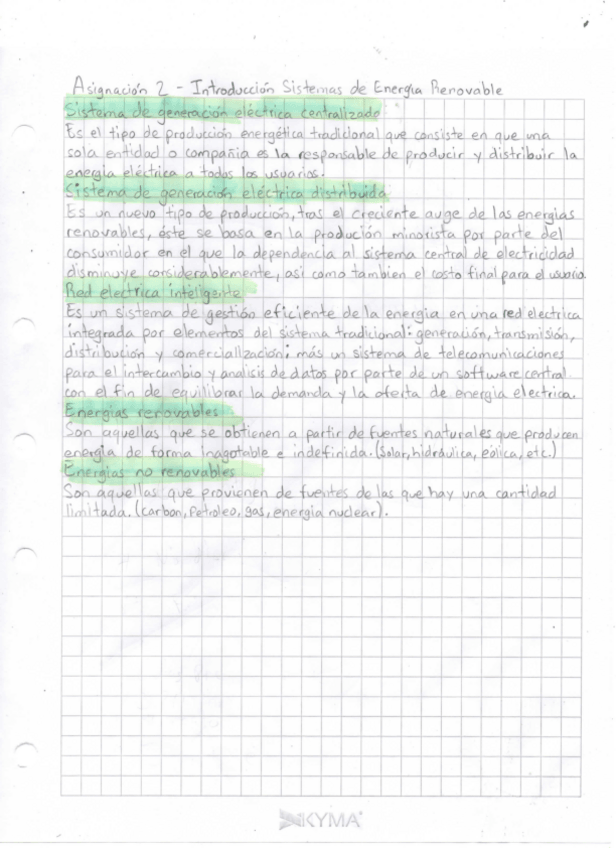 Asignación 2 - Introducción Sistemas de Energía Renovable
Sistema de generación eléctrica centralizado
Es el tipo de producción energética tradicional que consiste en que una
sola entidad o compañia es la responsable de producir y distribuir la
energía eléctrica a todos los usuarios.
Sistema de generación eléctrica distribuida
Es un nuevo tipo de producción, tras el creciente auge de las energías
renovables, éste se basa en la produción minorista por parte del
consumidor en el que la dependencia al sistema central de electricidad
disminuye considerablemente, asi como tambien el costo final para el usuario
Red electrica inteligente
Es un sistema de gestión eficiente de la energia en una red electrica
integrada por elementos del sistema tradicional: generación, transmisión,
distribución y comercialización; más un sistema de telecomunicaciones
para el intercambio y analisis de datos por parte de un software central
con el fin de equilibrar la demanda y la oferta de energia electrica.
Energías renovables
Son aquellas que se obtienen a partir de fuentes naturales que producen
energía de forma inagotable e indefinida. (Solar, hidráulica, eólica, etc.)
Energías no renovables
Son aquellas que provienen de fuentes de las que hay una cantidad
limitada. (carbon, Petroleo, gas, energia nuclear).
KYMA